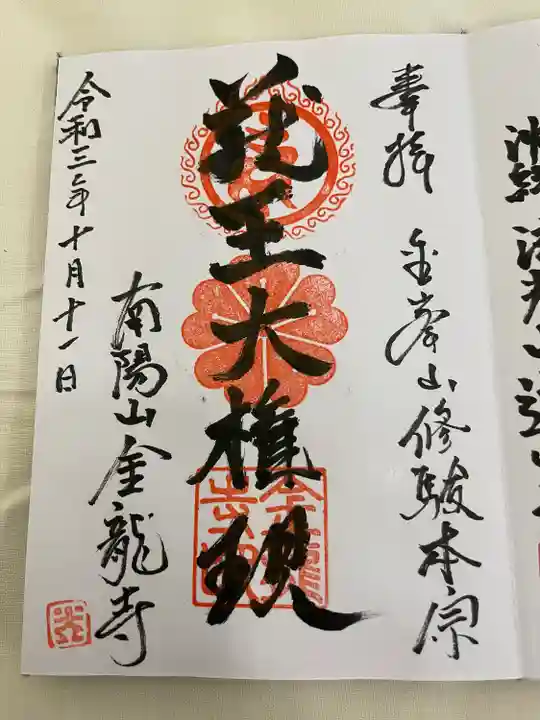 奉拝
金峯山修験本宗
蔵王大権現
南陽山金龍寺
令和三年十月十一日